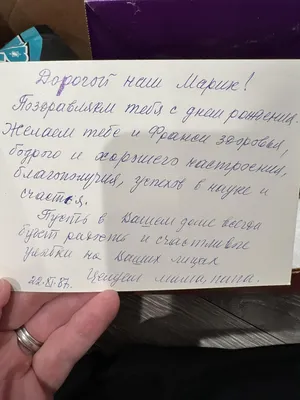 Дорогой наш Марик!
Поздравляем тебя с днем рождения.
Желаем тебе и Франси здоровья,
бодрого и хорошего настроения,
благополучия, успехов в науке и
счастья.
Пусть в Вашем доме всегда
будет радость и счастливые
улыбки на Ваших лицах
22.XI.87г. Целуем мама, папа.